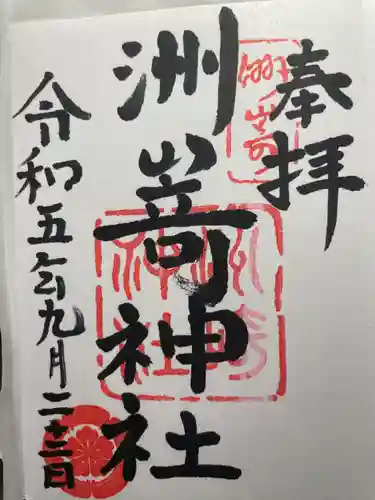 奉拝
洲嵜神社
令和五年九月二十二日